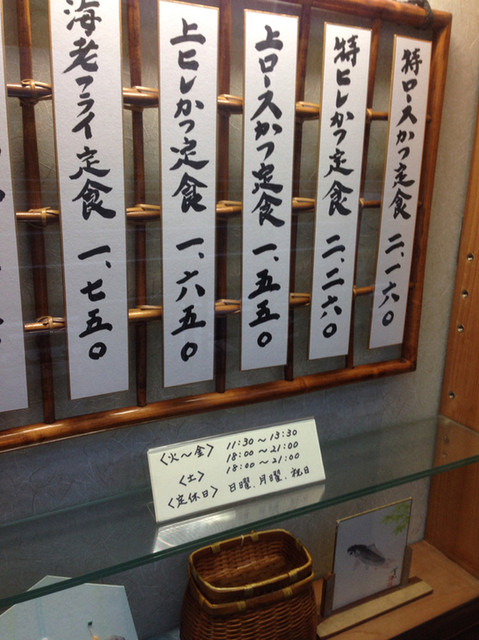 特ロースかつ定食 二、一六〇
特ヒレかつ定食 二、二六〇
上ロースかつ定食 一、五五〇
上ヒレかつ定食 一、六五〇
海老フライ定食 一、七五〇
〈火～金〉 11:30～13:30
18:00～21:00
〈土〉 18:00～21:00
〈定休日〉 日曜、月曜、祝日